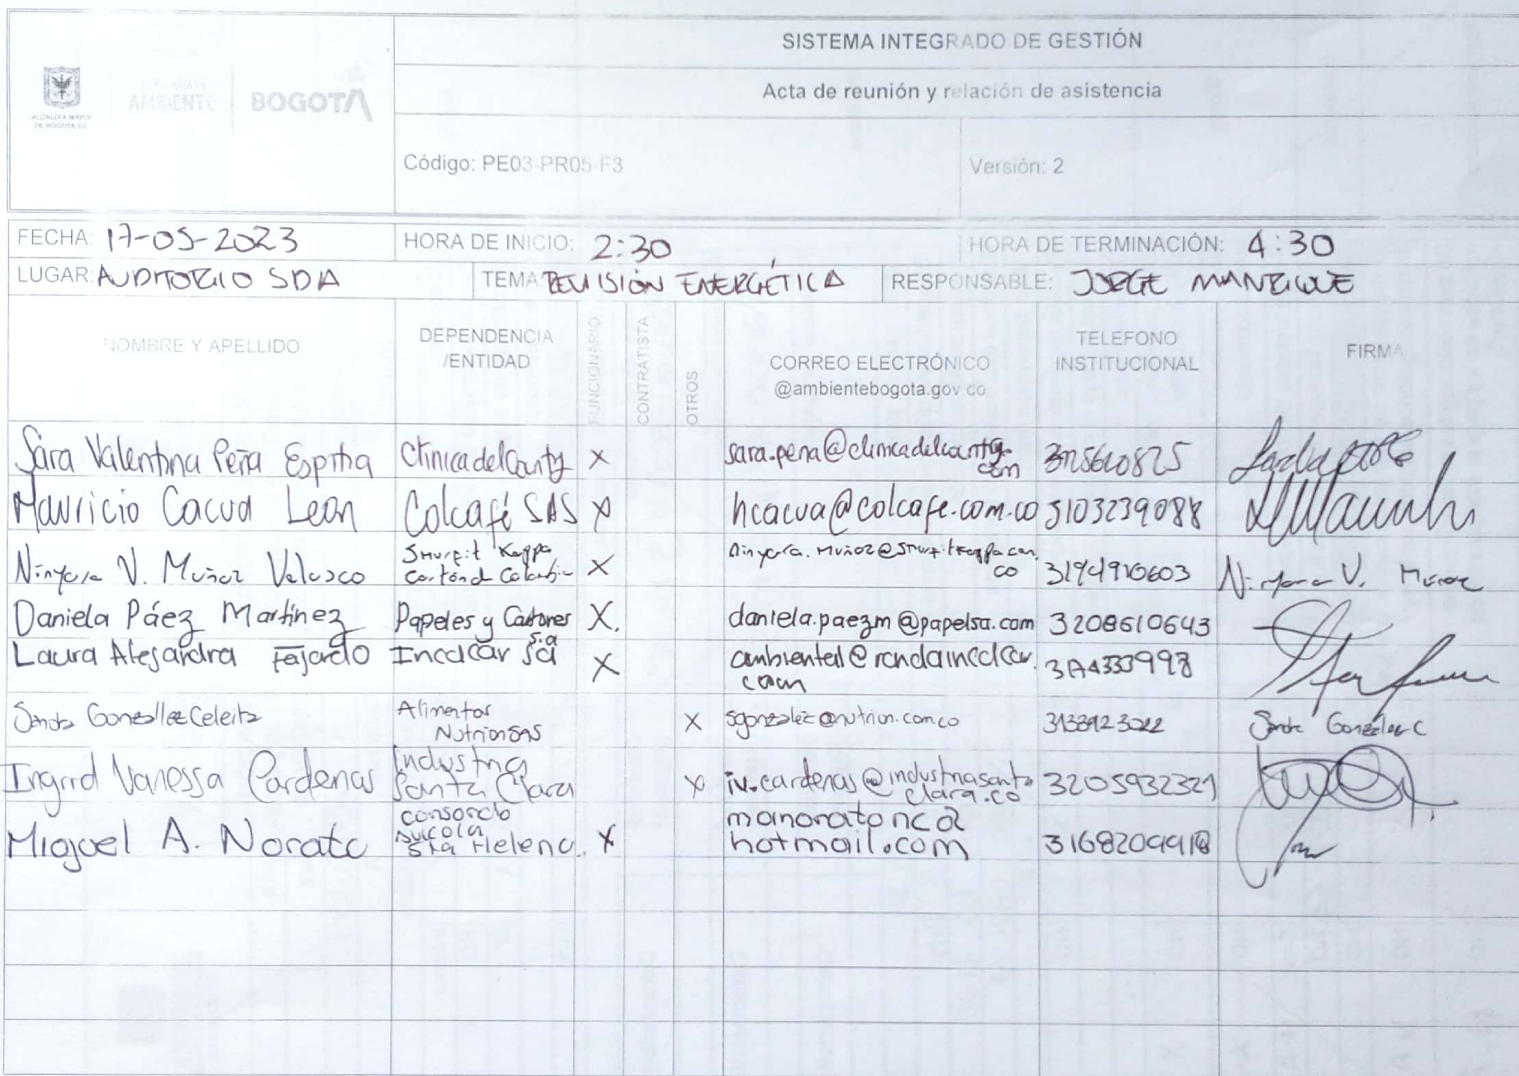 SISTEMA INTEGRADO DE GESTIÓN
Acta de reunión y relación de asistencia
ALCALDÍA MAYOR
DE BOGOTÁ D.C.
AMBIENTE
BOGOTÁ
Código: PE03-PR05-F3
Versión: 2
FECHA: 17-05-2023
HORA DE INICIO: 2:30
HORA DE TERMINACIÓN: 4:30
LUGAR: AUDITORIO SDA
TEMA: REVISIÓN ENERGÉTICA
RESPONSABLE: JORGE MANRIQUE
NOMBRE Y APELLIDO
DEPENDENCIA
/ENTIDAD
FUNCIONARIO
CONTRATISTA
OTROS
CORREO ELECTRÓNICO
@ambientebogota.gov.co
TELEFONO
INSTITUCIONAL
FIRMA
Sara Valentina Peña Espitia
Clínica del Country
X
sara.pena@clinicadelcountry.
com
Mauricio Cacua Leon
Colcafé SAS
X
hcacua@colcafe.com.co
3103239088
V. Muñoz Velasco
Smurfit Kappa
Cartón de Colombia
X
co
3194910603
V. Muñoz
Daniela Páez Martínez
Papeles y Cartones
S.a
X.
daniela.paezm@papelsa.com
3208610643
Laura Alejandra Fajardo
Incalcar sa
X
Sandra González Celeita
Alimentos
Nutrion SAS
X
sgonzalez@nutrion.com.co
Sandra González C
Ingrid Vanessa Cardenas
Industria
Santa Clara
X
iv.cardenas@industriasanta
clara.co
3205932321
Miguel A. Norato
consorcio
avicola
Sta Helena.
X
manoratonc@
hotmail.com